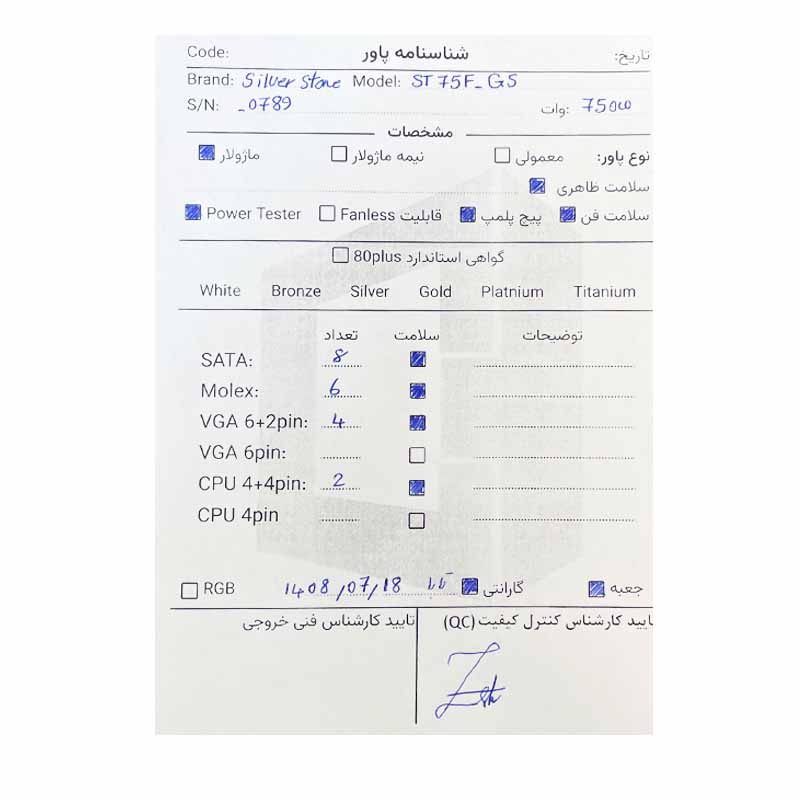 Code: شناسنامه پاور تاریخ:
Brand: Silver Stone Model: ST75F_GS
S/N: _0789 وات: 750w
مشخصات
نوع پاور: معمولی نیمه ماژولار ماژولار
سلامت ظاهری
سلامت فن پیچ پلمپ قابلیت Fanless Power Tester
گواهی استاندارد 80plus
White Bronze Silver Gold Platnium Titanium
تعداد سلامت توضیحات
SATA: 8
Molex: 6
VGA 6+2pin: 4
VGA 6pin:
CPU 4+4pin: 2
CPU 4pin
جعبه گارانتی تا 1408/07/18 RGB
تایید کارشناس کنترل کیفیت (QC) تایید کارشناس فنی خروجی